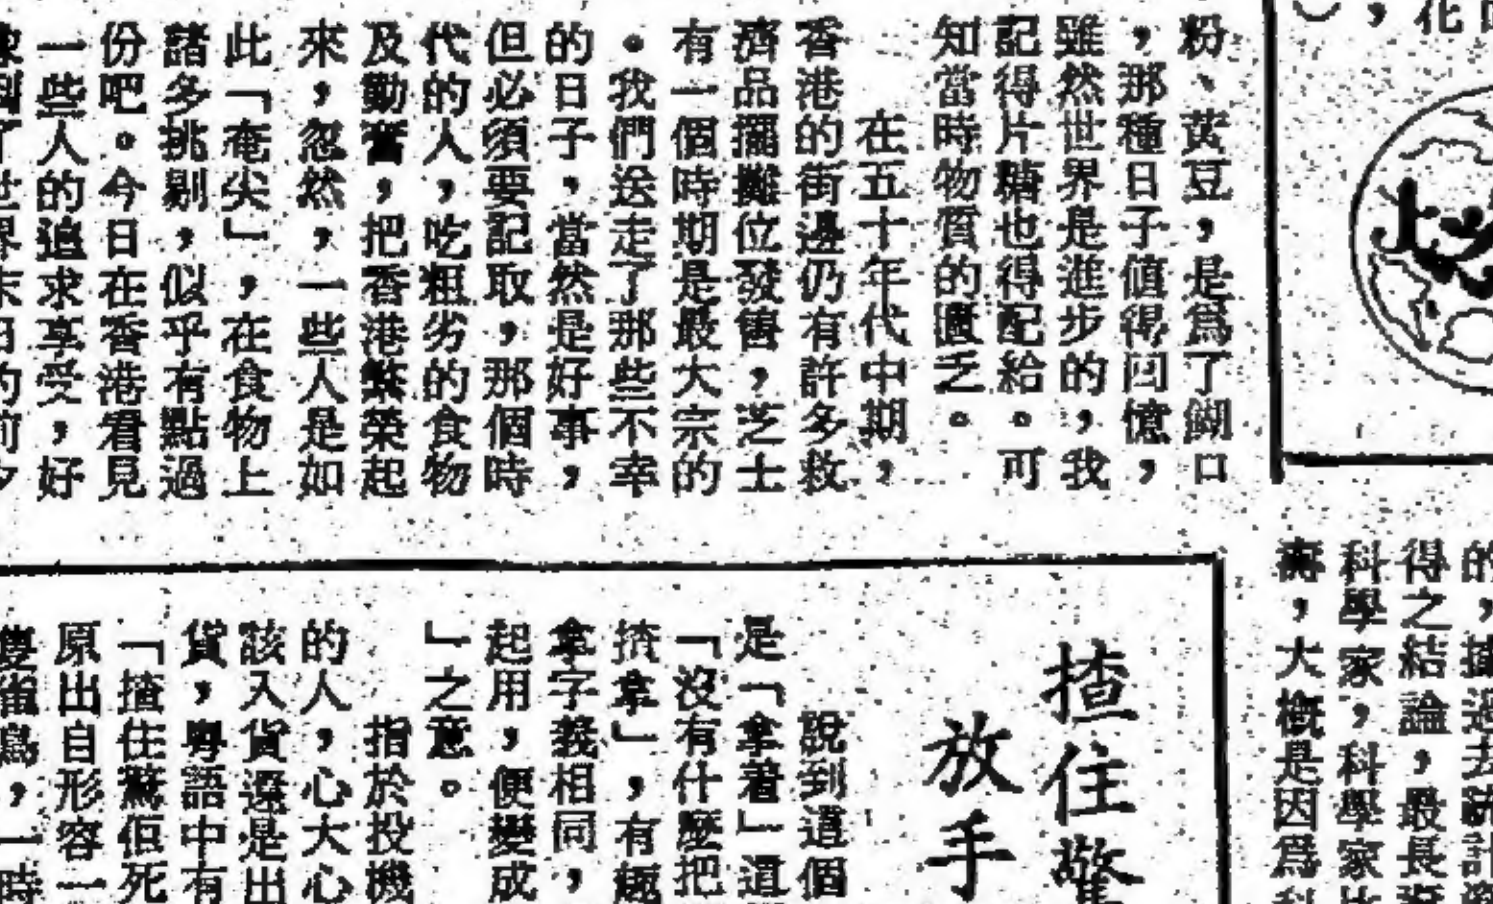 粉、黃豆，是為了餬口
，那種日子值得回憶，
雖然世界是進步的，我
記得片糖也得配給。可
知當時物質的匱乏。
在五十年代中期，
香港的街邊仍有許多救
濟品擺攤位發售，芝士
有一個時期是最大宗的
。我們送走了那些不幸
的日子，當然是好事，
但必須要記取，那個時
代的人，吃粗劣的食物
及勤奮，把香港繁榮起
來，忽然，一些人是如
此「奄尖」，在食物上
諸多挑剔，似乎有點過
份吧。今日在香港看見
一些人的追求享受，好
世界末日的前夕
化
的，據過去統計
得之結論，最長
科學家，科學家
壽，大概是因爲
揸住驚
放手
說到這個
是「拿着」這
「沒有什麼把
揸拿」，有
拿字義相同，
起用，便變成
」之意。
指於投機
的人，心大心
該入貨還是出
貨，粵語中有
「揸住驚佢死
原出自形容一
爲，一時